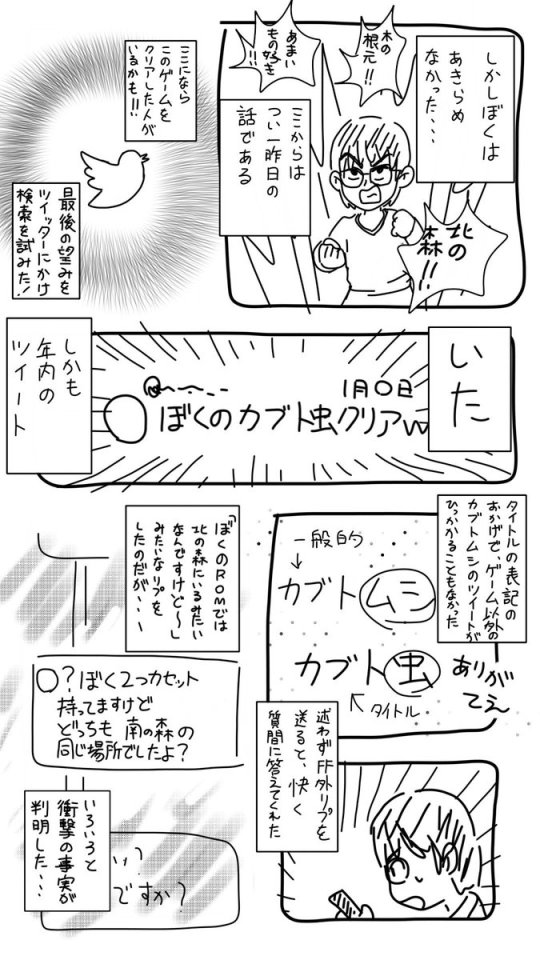 しかしぼくは
あきらめ
なかった・・・
木の
根元!!
あまい
もの好き
北の
森!!
ここからは
つい一昨日の
話である
ここになら
このゲームを
クリアした人が
いるかも!!!
最後の望みを
ツイッターにかけ
検索を試みた!
いた
1月〇日
ぼくのカブト虫クリアw
しかも
年内の
ツイート
タイトルの表記の
おかげで、ゲーム以外の
カブトムシのツイートが
ひっかかることもなかった
一般的
カブトムシ
カブト虫
タイトル
ありが
てえ
迷わずFF外リプを
送ると、快く
質問に答えてくれた
「ぼくのROMでは
北の森にいるみたい
なんですけど〜」
みたいなリプを
したのだが・・・
〇?ぼく2つカセット
持ってますけど
どっちも南の森の
同じ場所でしたよ?
いろいろと
衝撃の事実が
判明した・・・
い?
ですか?